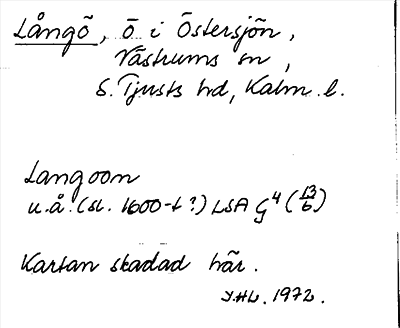 Långö, ö i Östersjön,
Västrums sn,
S. Tjusts hd, Kalm. l.
Langoon
u.å. (sl. 1600-t?) LSA G⁴ (13/6)
Kartan skadad här.
J.H.L. 1972.